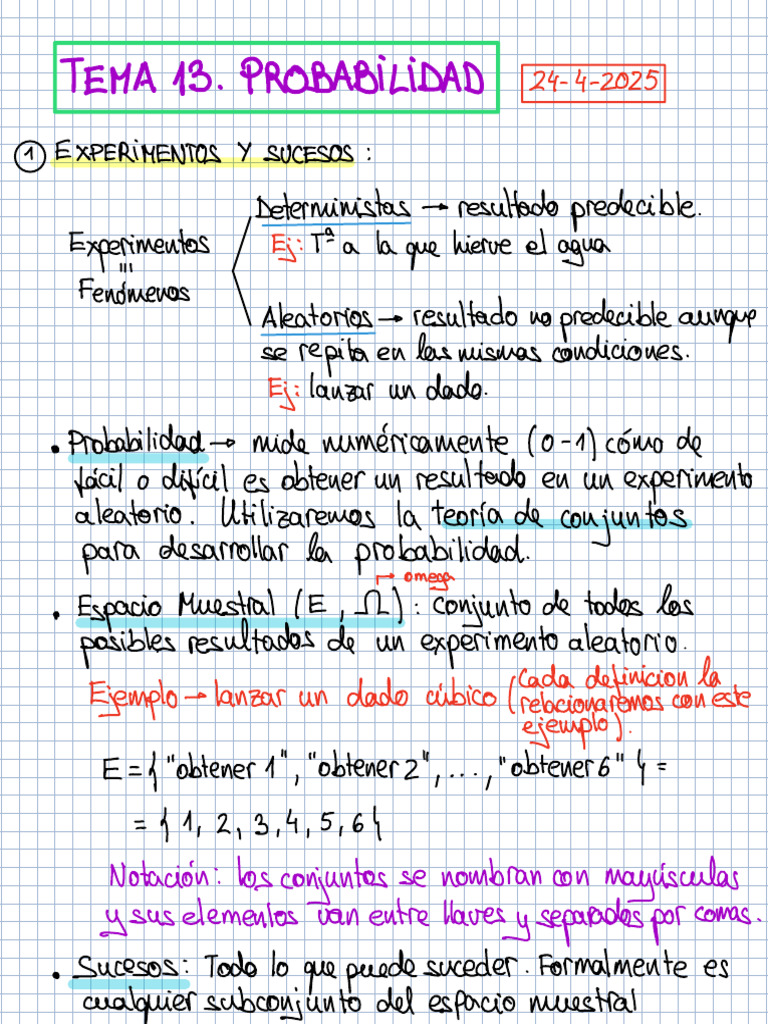 TEMA 13. PROBABILIDAD
24-4-2025
1 EXPERIMENTOS Y SUCESOS:
Experimentos
=
Fenómenos
Deterministas → resultado predecible.
Ej: Tª a la que hierve el agua
Aleatorios → resultado no predecible aunque
se repita en las mismas condiciones.
Ej: lanzar un dado.
• Probabilidad → mide numéricamente (0-1) cómo de
fácil o difícil es obtener un resultado en un experimento
aleatorio. Utilizaremos la teoría de conjuntos
para desarrollar la probabilidad.
→ omega
• Espacio Muestral (E, Ω): conjunto de todos los
posibles resultados de un experimento aleatorio.
Ejemplo → lanzar un dado cúbico (Cada definicion la
relacionaremos con este
ejemplo).
E = { "obtener 1", "obtener 2", ..., "obtener 6" } =
= { 1, 2, 3, 4, 5, 6 }
Notación: los conjuntos se nombran con mayúsculas
y sus elementos van entre llaves y separados por comas.
• Sucesos: Todo lo que puede suceder. Formalmente es
cualquier subconjunto del espacio muestral